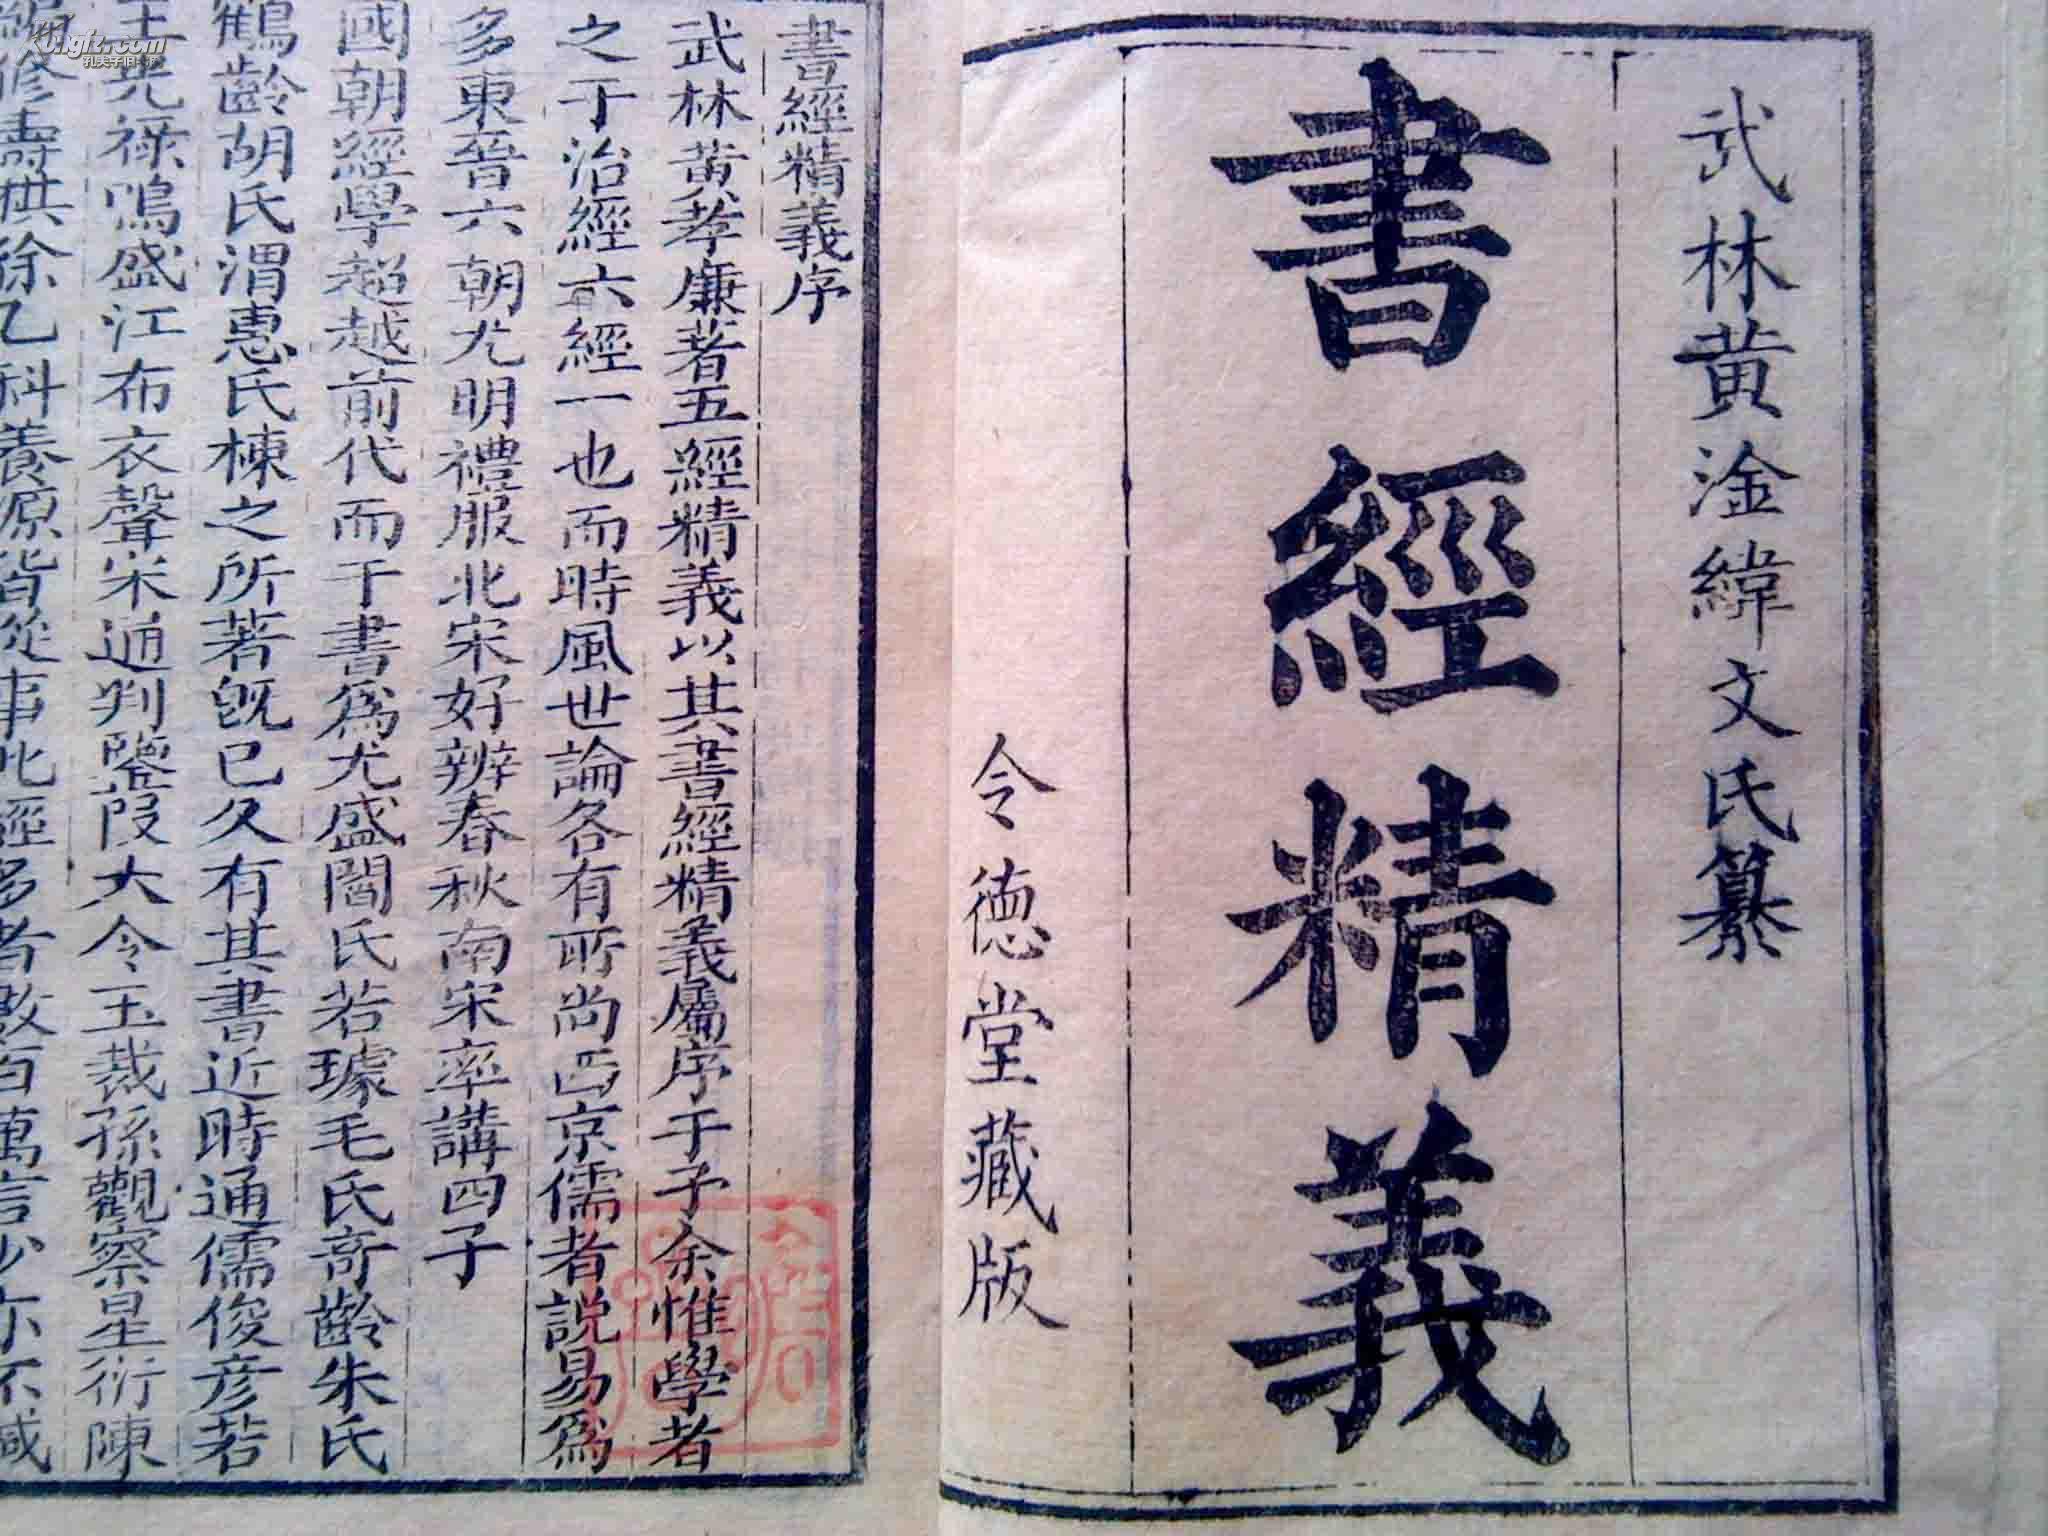 武林黄淦緯文氏纂
書經精義
令德堂藏版
書經精義序
武林黄孝廉著五經精義以其書經精義屬序于予余惟學者
之于治經六經一也而時風世論各有所尚西京儒者説易爲
多東晉六朝尤明禮服北宋好辨春秋南宋率講四子
國朝經學超越前代而于書爲尤盛閻氏若璩毛氏奇齡朱氏
鶴齡胡氏渭惠氏棟之所著既已久有其書近時通儒俊彦若
王光禄鳴盛江布衣聲宋通判鑒段大令玉裁孫觀察星衍陳
編修壽祺徐乙科養原皆從事此經多者數百萬言少亦不減
kongfz.com
孔夫子旧书网